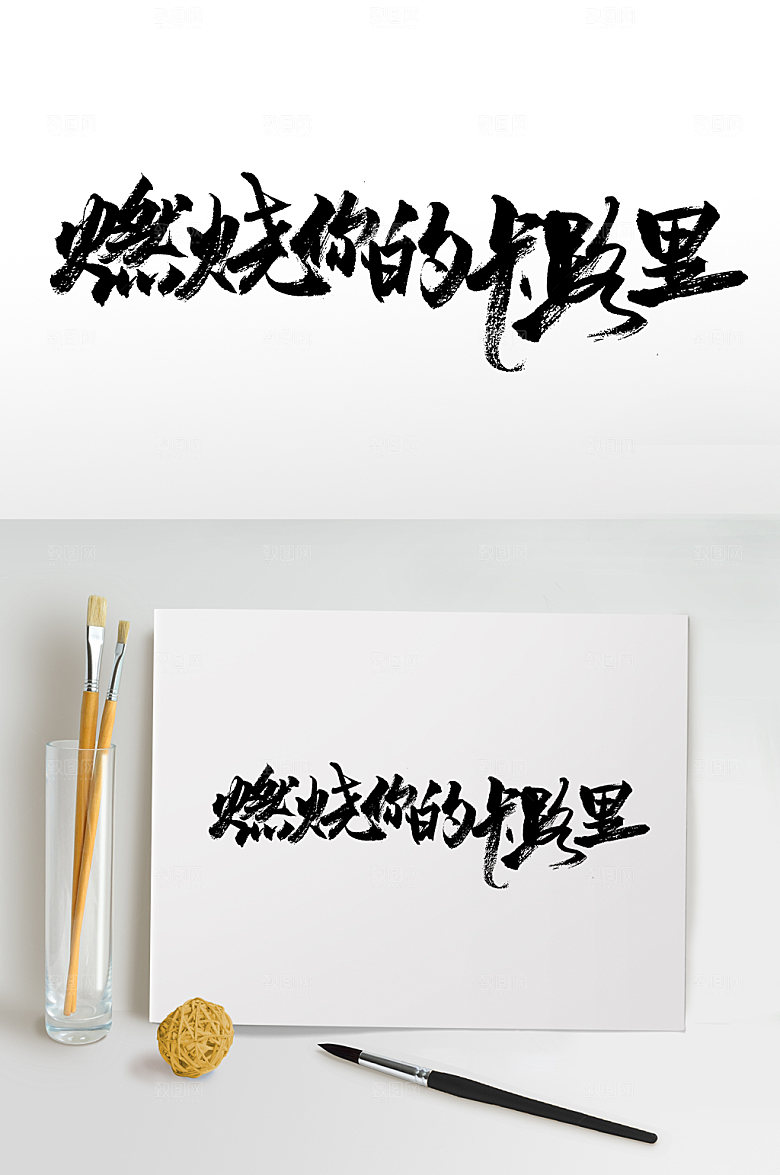 燃烧你的卡路里
燃烧你的卡路里